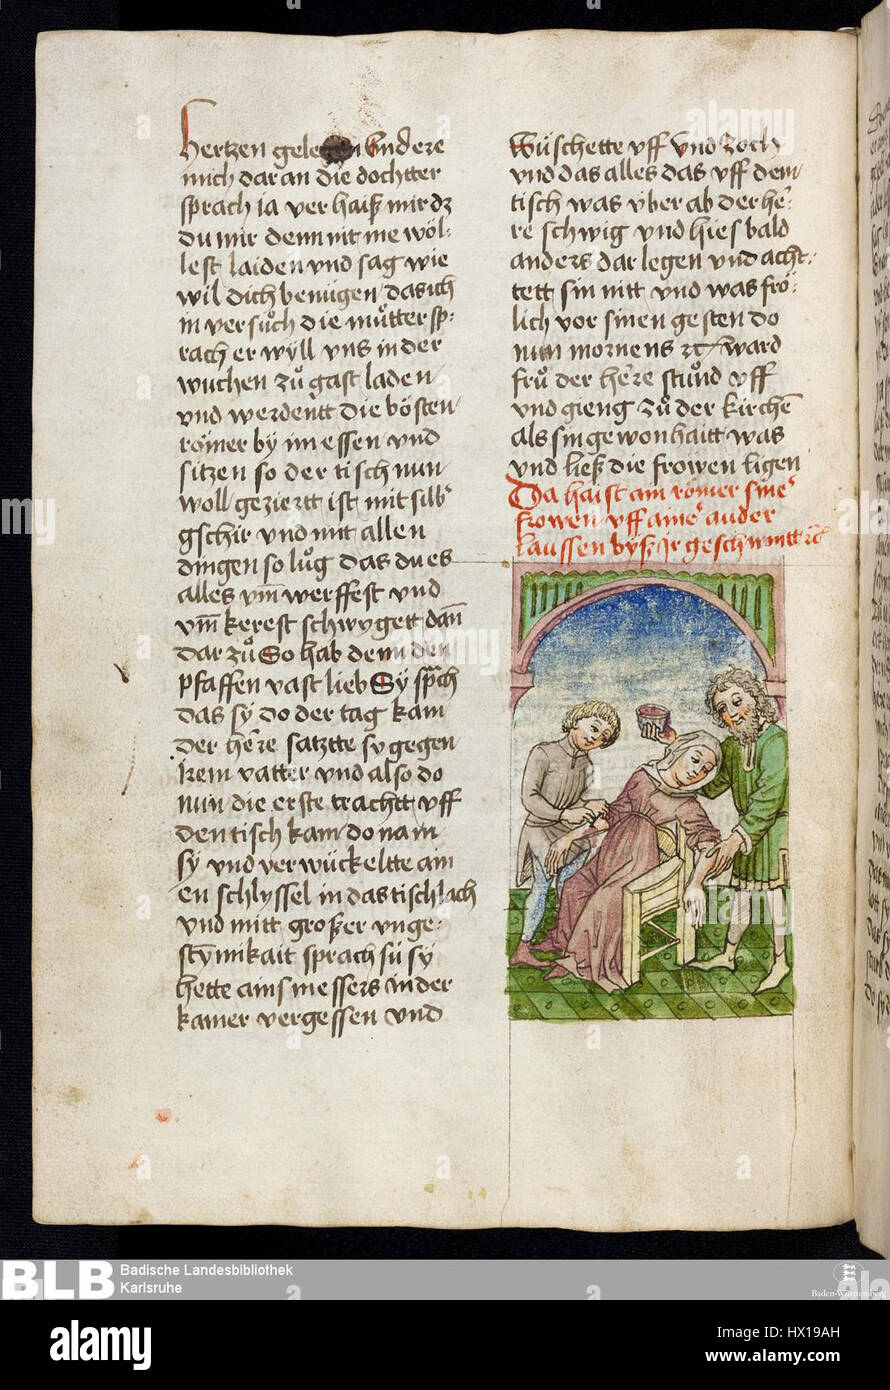 hertzen gelegen Endere
mich dar an die dochtter
sprach ia ver haiß mir dz
du mir denn nit me wöl-
lest laiden vnd sag wie
wil dich benügen das ich
in versůch die můtter sp-
rach er wyll vns in der
wuchen zů gast laden
vnd werdentt die bösten
römer by im essen vnd
sitzen so der tisch nun
woll geziertt ist mit silbr
gschir vnd mit allen
dingen so lůg das du es
alles vm̄ werffest vnd
vm̄ kerest schwygett dan̄
dar zů So hab denn den
pfaffen vast lieb Sÿ sprch
das sÿ do der tag kam
der here satztte sy gegen
irem vatter vnd also do
nun die erste trachtt vff
den tisch kam do nam
sÿ vnd verwückeltte ain
en schlyssel in das tischlach
vnd mitt großer vnge-
stymikait sprach sü sÿ
hette ains messers in der
kamer vergessen vnd
wüschette vff vnd zoch
vnd das alles das vff dem
tisch was vber ab der he-
re schwig vnd hies bald
anders dar legen vnd acht-
tett sin nitt vnd was frö-
lich vor sinen gesten do
nun mornens ward
frů der here stůnd vff
vnd gieng zů der kirchē
als sin gewonhaitt was
vnd ließ die frowen ligen
Da haist ain römer sine
frowen vff aine ander
laussen byß Jr geschwintt
BLB
Badische Landesbibliothek
Karlsruhe
Baden-Württemberg
alamy
Image ID: HX19AH
www.alamy.com